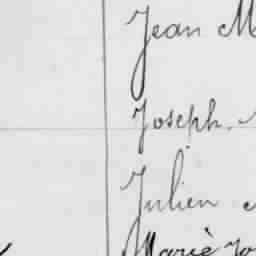 Jean M
Joseph.
Julien
Marie Jo